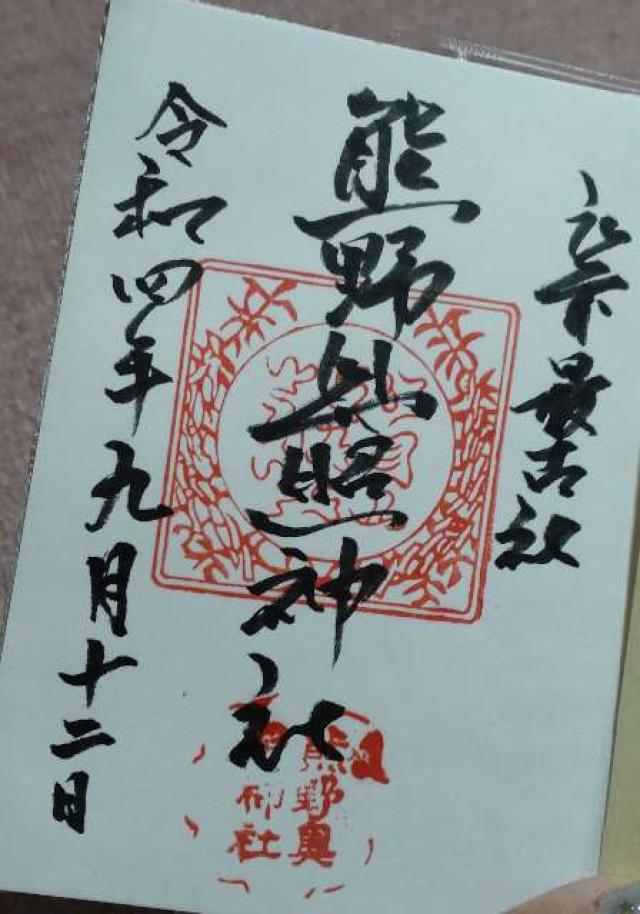 最古社
熊野奥照神社
令和四年九月十二日
熊野奥